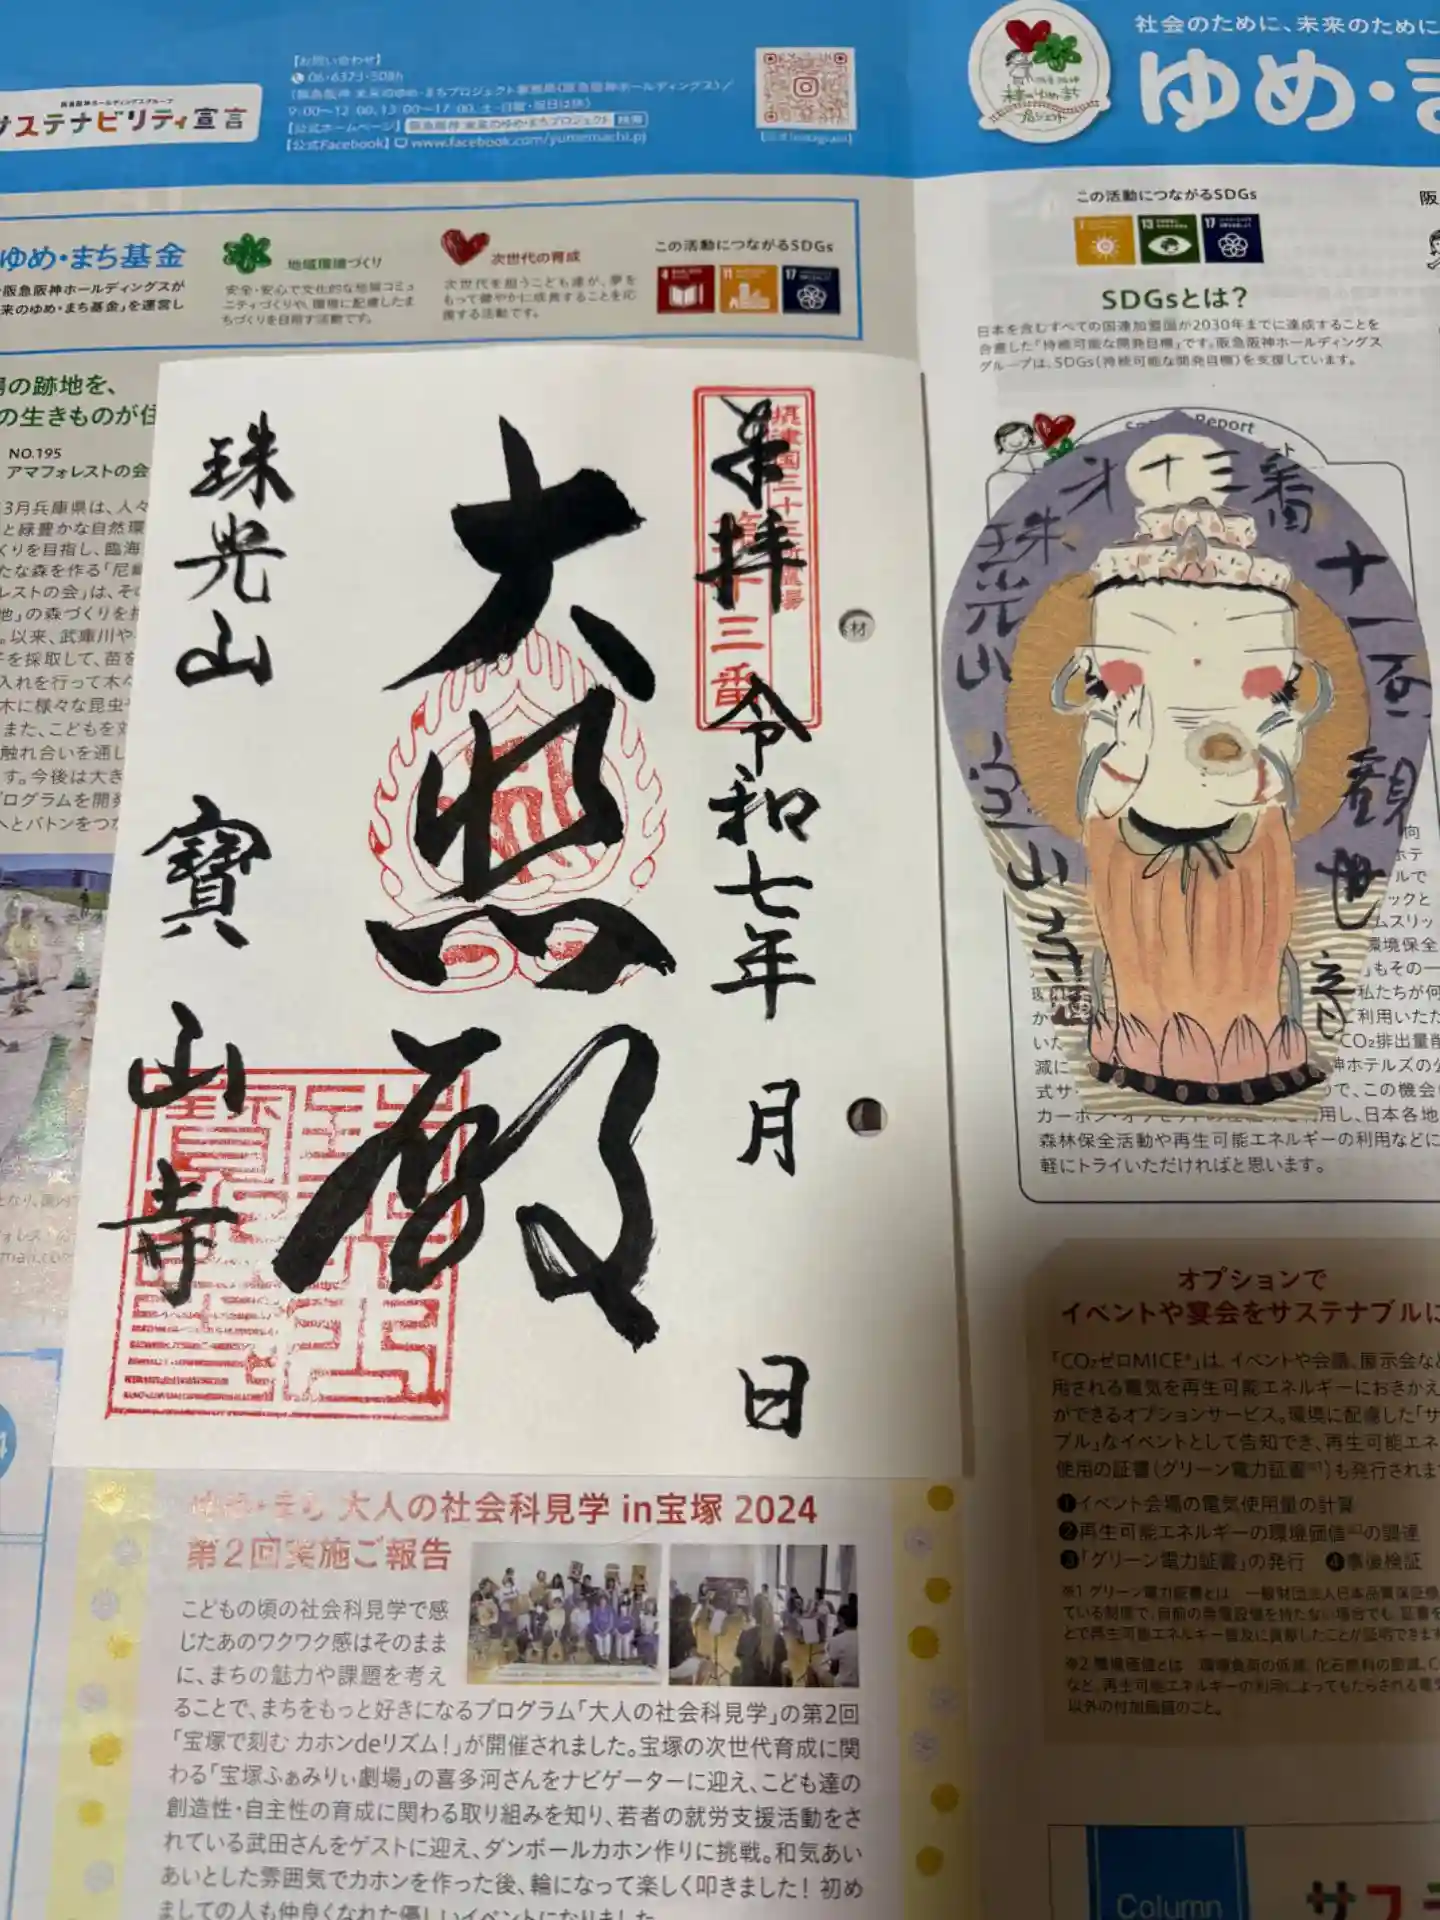 阪急阪神ホールディングスグループ
サステナビリティ宣言
【お問い合わせ】
(阪急阪神 未来のゆめ・まちプロジェクト事務局(阪急阪神ホールディングス)/
9:00〜12:00、13:00〜17:00、土・日曜・祝日は休)
【公式ホームページ】阪急阪神 未来のゆめ・まちプロジェクト 検索
【公式Facebook】www.facebook.com/yumemachi.pj
【公式Instagram】
社会のために、未来のために
ゆめ・ま
未来のゆめ・まち
プロジェクト
ゆめ・まち基金
阪急阪神ホールディングスが
来のゆめ・まち基金」を運営し
地域環境づくり
安全・安心で文化的な地域コミュ
ニティづくりや、環境に配慮したま
ちづくりを目指す活動です。
次世代の育成
次世代を担うこども達が、夢を
もって健やかに成長することを応
援する活動です。
この活動につながるSDGs
4
11
17
この活動につながるSDGs
7
13
17
阪
SDGsとは?
日本を含むすべての国連加盟国が2030年までに達成することを
合意した「持続可能な開発目標」です。阪急阪神ホールディングス
グループは、SDGs(持続可能な開発目標)を支援しています。
の跡地を、
の生きものが住
NO.195
アマフォレストの会
3月兵庫県は、人々
と緑豊かな自然環
くりを目指し、臨海
たな森を作る「尼崎
レストの会」は、その
地」の森づくりを担
。以来、武庫川や
子を採取して、苗を
入れを行って木々
木に様々な昆虫や
また、こどもを対
触れ合いを通し
す。今後は大き
ログラムを開発
へとバトンをつな
奉拝
摂津国三十三所霊場
第十三番
令和七年 月 日
大悲殿
珠光山 寳山寺
材
Report
十一面観世音
才十三番
珠光山
宝山寺
向
ホテ
ルで
ックと
ムスリッ
環境保全
」もその一
私たちが何
ご利用いただ
CO₂排出量削
減に
神ホテルズの公
式サ
ので、この機会に
用し、日本各地
森林保全活動や再生可能エネルギーの利用などに
軽にトライいただければと思います。
オプションで
イベントや宴会をサステナブルに
「CO₂ゼロMICE®」は、イベントや会議、展示会など
用される電気を再生可能エネルギーにおきかえ
ができるオプションサービス。環境に配慮した「サ
ブル」なイベントとして告知でき、再生可能エネ
使用の証書(グリーン電力証書※1)も発行されま
❶イベント会場の電気使用量の計算
❷再生可能エネルギーの環境価値※2の調達
❸「グリーン電力証書」の発行 ❹事後検証
※1 グリーン電力証書とは 一般財団法人日本品質保証機
ている制度で、自前の発電設備を持たない場合でも、証書を
とで再生可能エネルギー普及に貢献したことが証明できます
※2 環境価値とは 環境負荷の低減、化石燃料の節減、C
など、再生可能エネルギーの利用によってもたらされる電気
以外の付加価値のこと。
ゆめ・まち 大人の社会科見学 in宝塚 2024
第2回実施ご報告
こどもの頃の社会科見学で感
じたあのワクワク感はそのまま
に、まちの魅力や課題を考え
ることで、まちをもっと好きになるプログラム「大人の社会科見学」の第2回
「宝塚で刻む カホンdeリズム!」が開催されました。宝塚の次世代育成に関
わる「宝塚ふぁみりぃ劇場」の喜多河さんをナビゲーターに迎え、こども達の
創造性・自主性の育成に関わる取り組みを知り、若者の就労支援活動をさ
れている武田さんをゲストに迎え、ダンボールカホン作りに挑戦。和気あい
あいとした雰囲気でカホンを作った後、輪になって楽しく叩きました! 初め
ましての人も仲良くなれた優しいイベントになりました。
Column
サステ